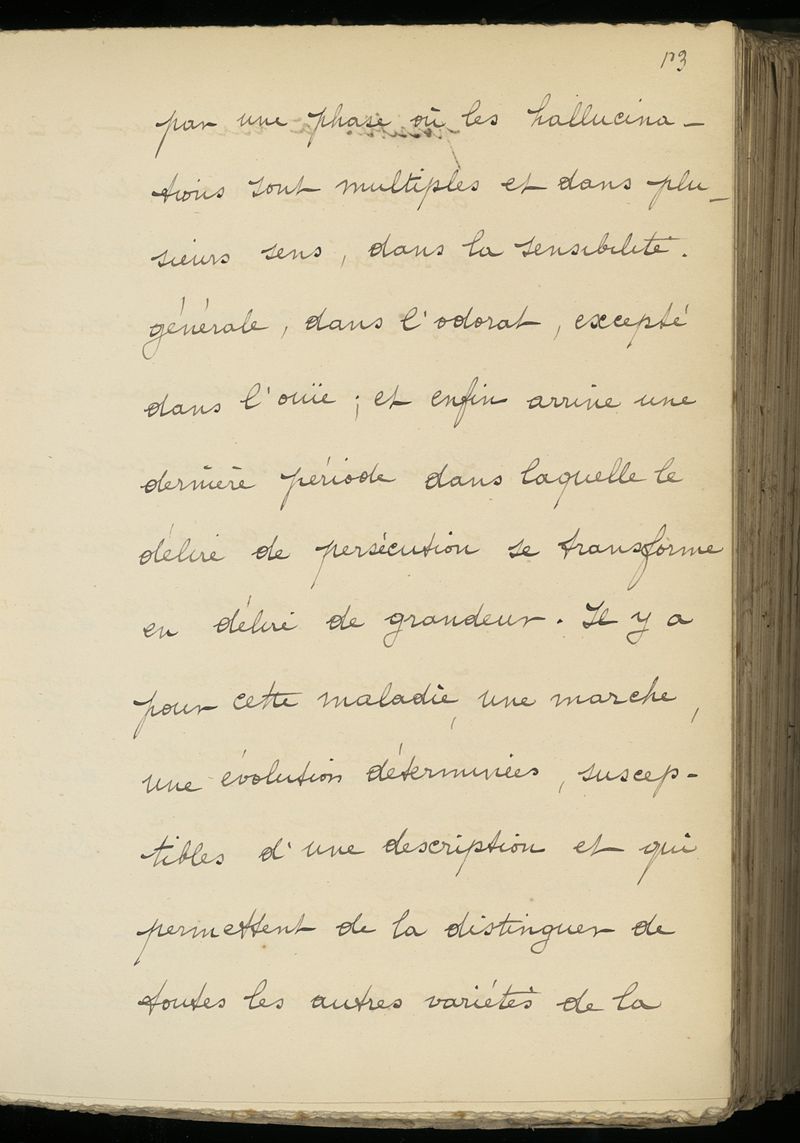 173
par une phase où les hallucina-
tions sont multiples et dans plu-
sieurs sens, dans la sensibilité.
générale, dans l'odorat, excepté
dans l'ouïe ; et enfin arrive une
dernière période dans laquelle le
délire de persécution se transforme
en délire de grandeur. Il y a
pour cette maladie, une marche,
une évolution déterminées, suscep-
tibles d'une description et qui
permettent de la distinguer de
toutes les autres variétés de la